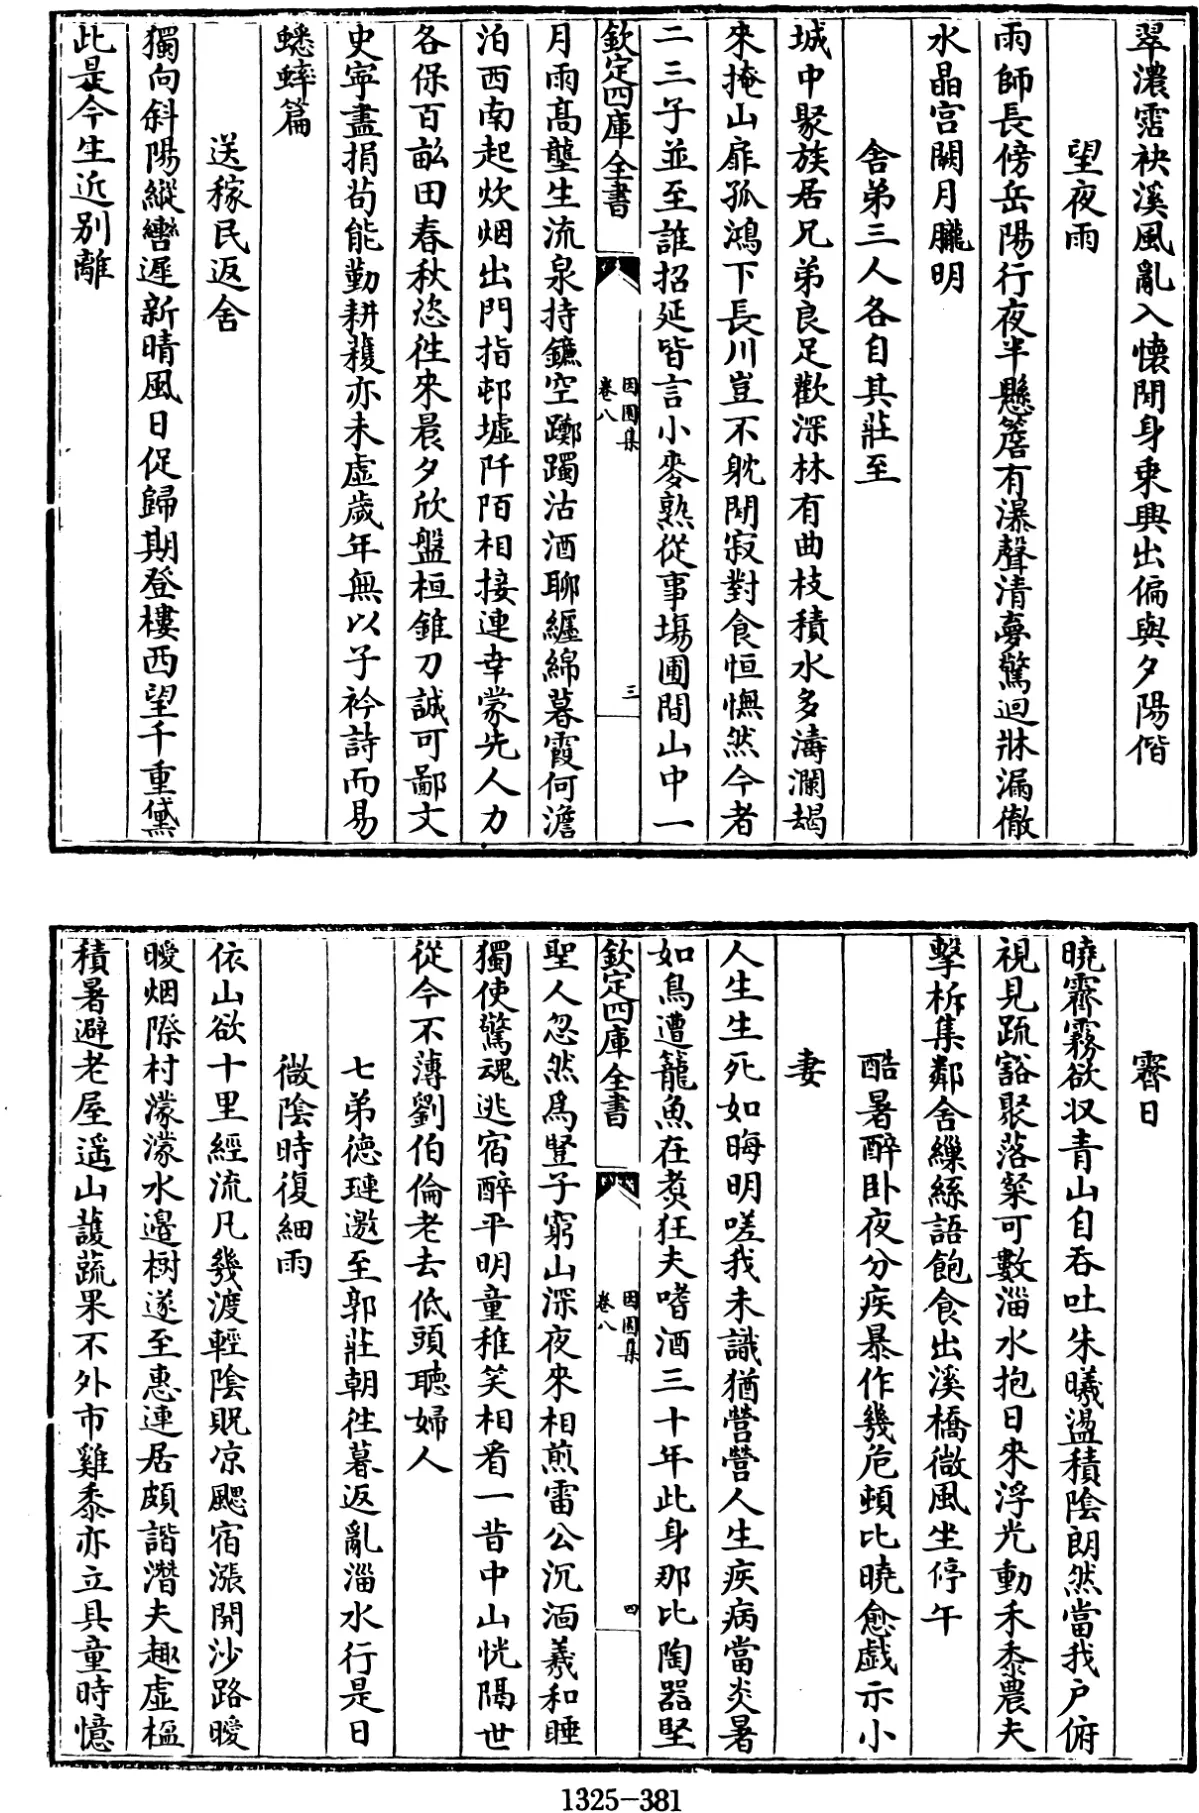 翠濃霑袂溪風亂入懷閒身乘興出偏與夕陽偕
望夜雨
雨師長傍岳陽行夜半懸簷有瀑聲清夢驚迴牀漏徹
水晶宮闕月朧明
舍弟三人各自其莊至
城中聚族居兄弟良足歡深林有曲枝積水多濤瀾朅
來掩山扉孤鴻下長川豈不躭閒寂對食恒憮然今者
二三子並至誰招延皆言小麥熟從事塲圃間山中一
欽定四庫全書
因園集
卷八
三
月雨髙壟生流泉持鑣空躑躅沽酒聊纏綿暮霞何澹
泊西南起炊烟出門指邨墟阡陌相接連幸蒙先人力
各保百畝田春秋恣徃來晨夕欣盤桓錐刀誠可鄙文
史寧盡捐茍能勤耕穫亦未虚歲年無以子衿詩而易
蟋蟀篇
送稼民返舍
獨向斜陽縱轡遲新晴風日促歸期登樓西望千重黛
此是今生近别離
霽日
曉霽霧欲収青山自吞吐朱曦盪積陰朗然當我户俯
視見疏豁聚落粲可數淄水抱日來浮光動禾黍農夫
擊柝集鄰舍繅絲語飽食出溪橋微風坐停午
酷暑醉卧夜分疾暴作幾危頓比曉愈戲示小
妻
人生生死如晦明嗟我未識猶營營人生疾病當炎暑
如鳥遭籠魚在煑狂夫嗜酒三十年此身那比陶器堅
欽定四庫全書
因園集
卷八
四
聖人忽然爲豎子窮山深夜來相煎雷公沉湎羲和睡
獨使驚魂逃宿醉平明童稚笑相看一昔中山恍隔世
從今不薄劉伯倫老去低頭聴婦人
七弟德璉邀至郭莊朝徃暮返亂淄水行是日
微陰時復細雨
依山欲十里經流凡幾渡輕陰貺凉颸宿漲開沙路曖
曖烟際村濛濛水邉樹遂至惠連居頗諧潛夫趣虚楹
積暑避老屋遥山䕶蔬果不外市雞黍亦立具童時憶